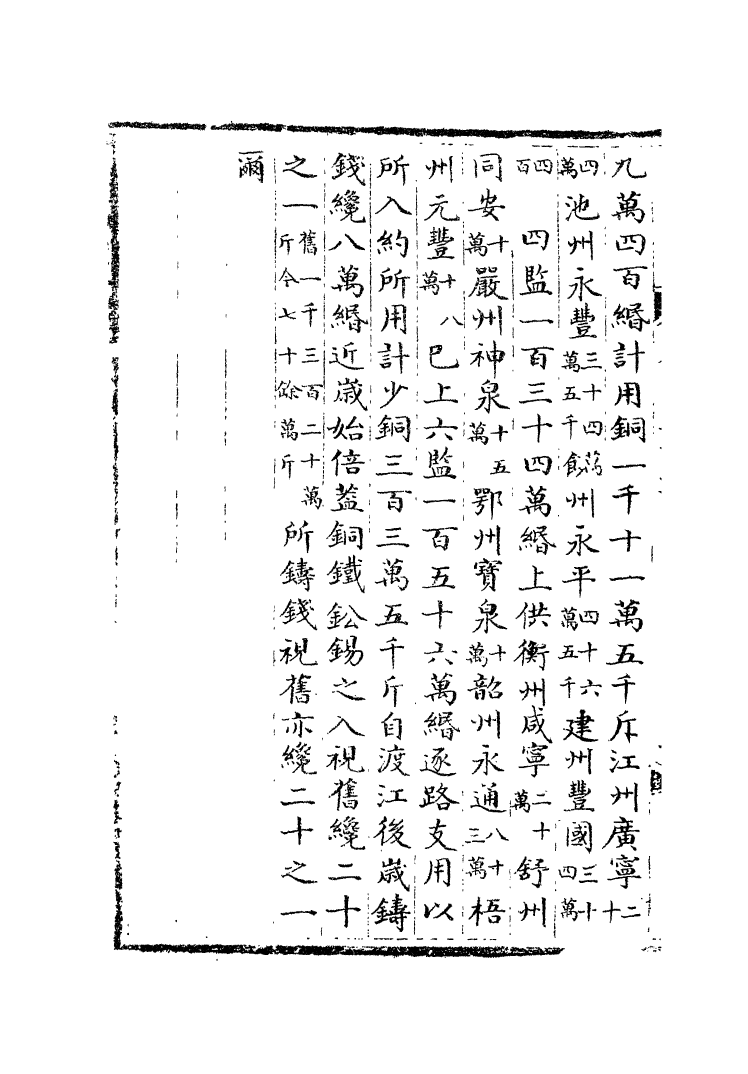 九萬四百緡計用銅一千十一萬五千斥江州廣寧二十
四萬池州永豐三十四萬五千州永平四十六萬五千建州豐國三十四萬
四百四監一百三十四萬緡上供衡州咸寧二十萬舒州
同安十萬嚴州神泉十五萬鄂州寶泉十萬韶州永通八十三萬梧
州元豐十八萬巳上六監一百五十六萬緡逐路支用以
所入約所用計少銅三百三萬五千斤自渡江後歲鑄
錢纔八萬緡近歲始倍葢銅鐵鈆錫之入視舊纔二十
之一舊一千三百二十萬斤今七十餘萬斤所鑄錢視舊亦纔二十之一
爾